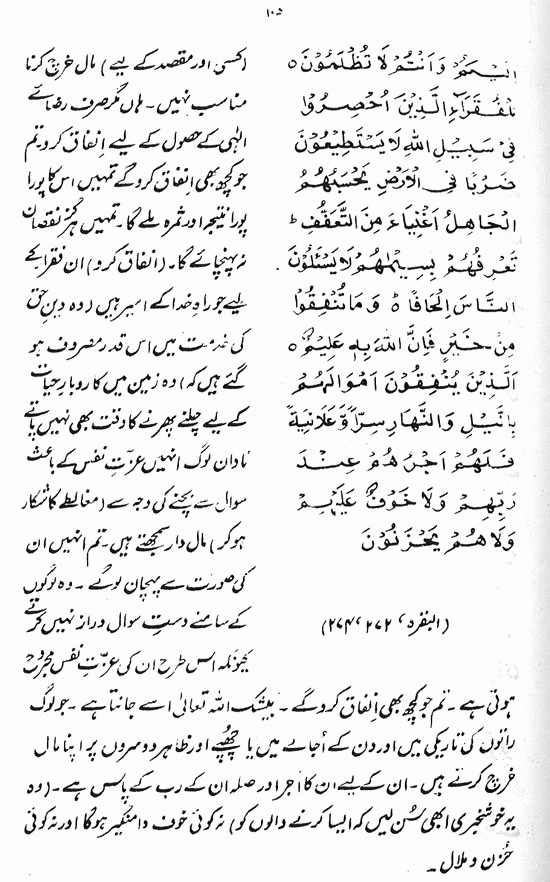 ۱۰۵
اِلَيْكُمْ وَاَنْتُمْ لَا تُظْلَمُوْنَ ۝
لِلْفُقَرَآءِ الَّذِيْنَ اُحْصِرُوْا
فِيْ سَبِيْلِ اللّٰهِ لَا يَسْتَطِيْعُوْنَ
ضَرْبًا فِي الْاَرْضِ يَحْسَبُهُمُ
الْجَاهِلُ اَغْنِيَآءَ مِنَ التَّعَفُّفِ ط
تَعْرِفُهُمْ بِسِيْمٰهُمْ لَا يَسْئَلُوْنَ
النَّاسَ اِلْحَافًا ط وَمَا تُنْفِقُوْا
مِنْ خَيْرٍ فَاِنَّ اللّٰهَ بِهٖ عَلِيْمٌ ۝
اَلَّذِيْنَ يُنْفِقُوْنَ اَمْوَالَهُمْ
بِالَّيْلِ وَالنَّهَارِ سِرًّا وَّعَلَانِيَةً
فَلَهُمْ اَجْرُهُمْ عِنْدَ
رَبِّهِمْ وَلَا خَوْفٌ عَلَيْهِمْ
وَلَا هُمْ يَحْزَنُوْنَ
(البقرہ، ۲۷۲، ۲۷۴)
(کسی اور مقصد کے لیے) مال خرچ کرنا
مناسب نہیں۔ ہاں مگر صرف رضائے
الٰہی کے حصول کے لیے اِنفاق کرو۔ تم
جو کچھ بھی اِنفاق کرو گے تمہیں اس کا پورا
پورا نتیجہ اور ثمرہ ملے گا۔ تمہیں ہرگز نقصان
نہ پہنچائے گا۔ (انفاق کرو) ان فقرا کے
لیے جو راہِ خدا کے اسیر ہیں (وہ دینِ حق
کی خدمت میں اس قدر مصروف ہو
گئے ہیں کہ) وہ زمین میں کاروبارِ حیات
کے لیے چلنے پھرنے کا وقت بھی نہیں پاتے
نادان لوگ انہیں عزّتِ نفس کے باعث
سوال سے بچنے کی وجہ سے (مغالطے کا شکار
ہو کر) مال دار سمجھتے ہیں۔ تم انہیں ان
کی صورت سے پہچان لو گے۔ وہ لوگوں
کے سامنے دستِ سوال دراز نہیں کرتے
کیونکہ اس طرح ان کی عزّتِ نفس مجروح
ہوتی ہے۔ تم جو کچھ بھی اِنفاق کرو گے۔ بیشک اللہ تعالیٰ اسے جانتا ہے۔ جو لوگ
راتوں کی تاریکی میں اور دن کے اُجالے میں یا چھپے اور ظاہر دوسروں پر اپنا مال
خرچ کرتے ہیں۔ ان کے لیے ان کا اجر اور صلہ ان کے رب کے پاس ہے۔ (وہ
یہ خوشخبری ابھی سُن لیں کہ ایسا کرنے والوں کو) نہ کوئی خوف دامنگیر ہوگا اور نہ کوئی
حُزن و ملال۔